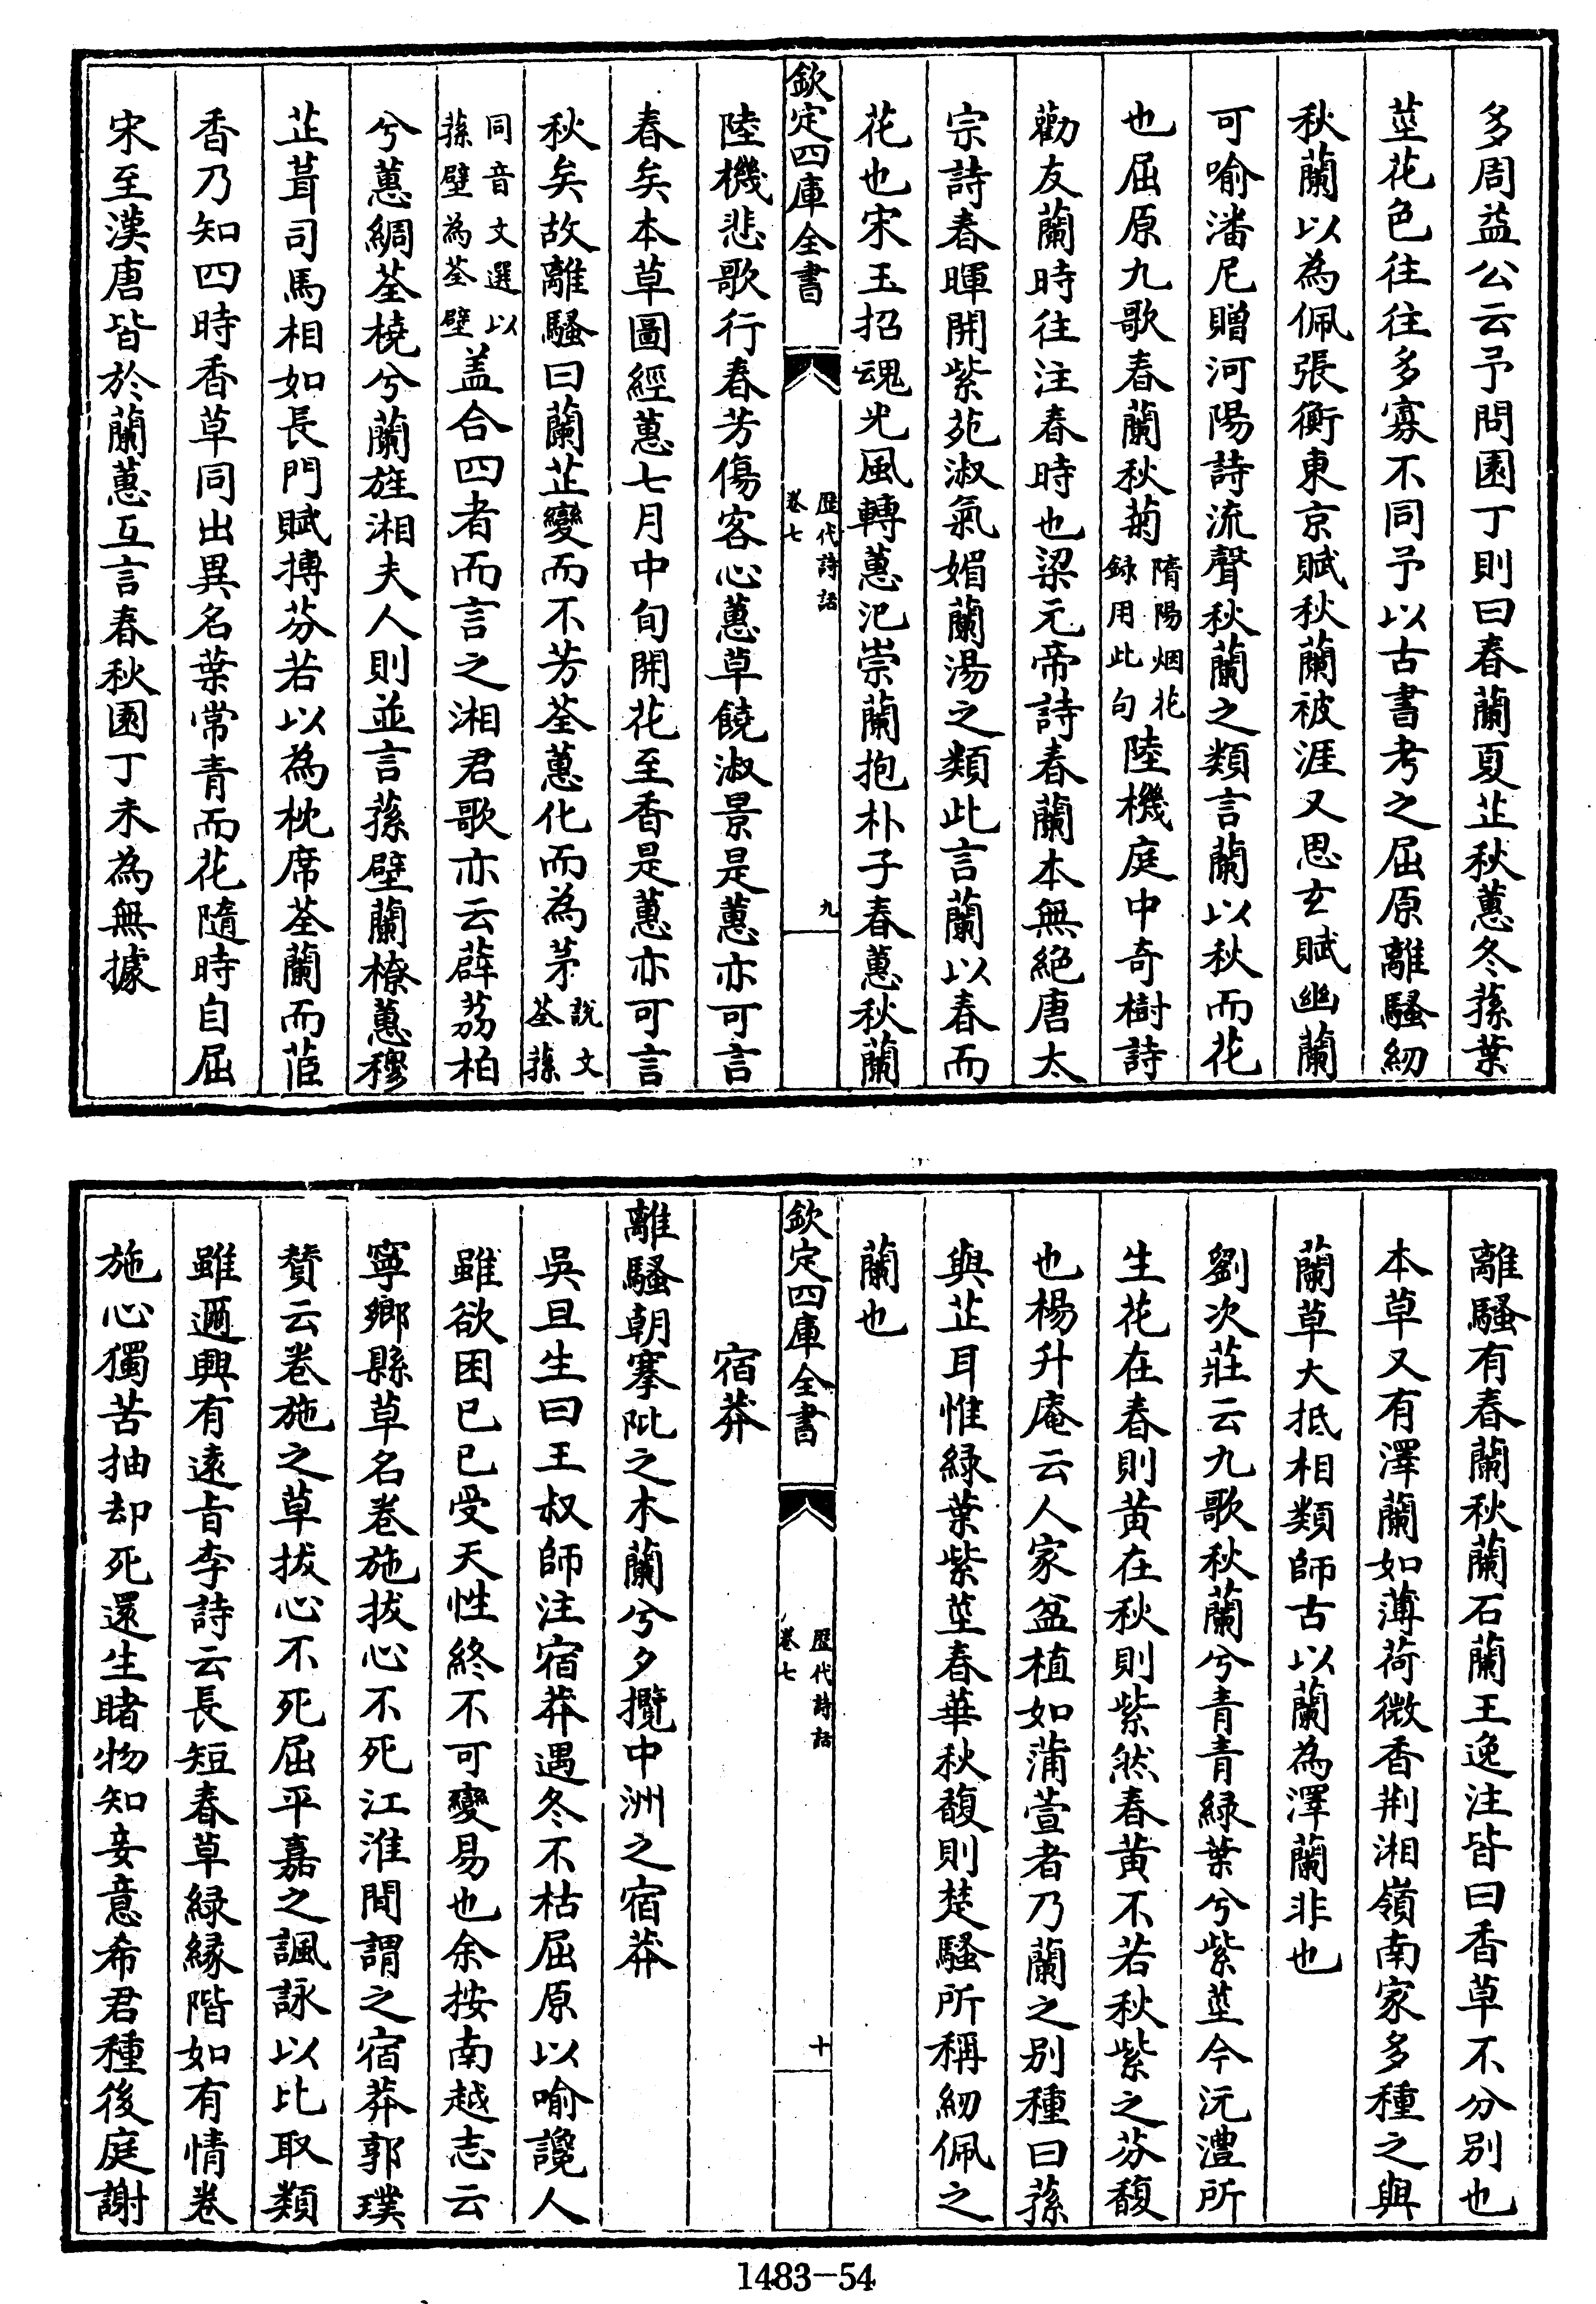 多周益公云予問園丁則曰春蘭夏芷秋蕙冬蓀葉
莖花色往往多寡不同予以古書考之屈原離騷紉
秋蘭以為佩張衡東京賦秋蘭被涯又思玄賦幽蘭
可喻潘尼贈河陽詩流聲秋蘭之類言蘭以秋而花
也屈原九歌春蘭秋菊隋陽烟花錄用此句陸機庭中奇樹詩
勸友蘭時往注春時也梁元帝詩春蘭本無絕唐太
宗詩春暉開紫苑淑氣媚蘭湯之類此言蘭以春而
花也宋玉招魂光風轉蕙汜崇蘭抱朴子春蕙秋蘭
欽定四庫全書
歷代詩話
卷七
九
陸機悲歌行春芳傷客心蕙草饒淑景是蕙亦可言
春矣本草圖經蕙七月中旬開花至香是蕙亦可言
秋矣故離騷曰蘭芷變而不芳荃蕙化而為茅說文荃蓀
同音文選以蓀壁為荃壁盖合四者而言之湘君歌亦云薜荔柏
兮蕙綢荃橈兮蘭旌湘夫人則並言蓀壁蘭橑蕙櫋
芷葺司馬相如長門賦摶芬若以為枕席荃蘭而茝
香乃知四時香草同出異名葉常青而花隨時自屈
宋至漢唐皆於蘭蕙互言春秋園丁未為無據
離騷有春蘭秋蘭石蘭王逸注皆曰香草不分別也
本草又有澤蘭如薄荷微香荆湘嶺南家多種之與
蘭草大抵相類師古以蘭為澤蘭非也
劉次莊云九歌秋蘭兮青青綠葉兮紫莖今沅澧所
生花在春則黃在秋則紫然春黃不若秋紫之芬馥
也楊升庵云人家盆植如蒲萱者乃蘭之別種曰蓀
與芷耳惟綠葉紫莖春華秋馥則楚騷所稱紉佩之
蘭也
欽定四庫全書
歷代詩話
卷七
十
宿莽
離騷朝搴阰之木蘭兮夕攬中洲之宿莽
吳旦生曰王叔師注宿莽遇冬不枯屈原以喻讒人
雖欲困已已受天性終不可變易也余按南越志云
寧鄉縣草名卷施拔心不死江淮間謂之宿莽郭璞
贊云卷施之草拔心不死屈平嘉之諷詠以比取類
雖邇興有遠旨李詩云長短春草綠緣階如有情卷
施心獨苦抽却死還生睹物知妾意希君種後庭謝
1483-54